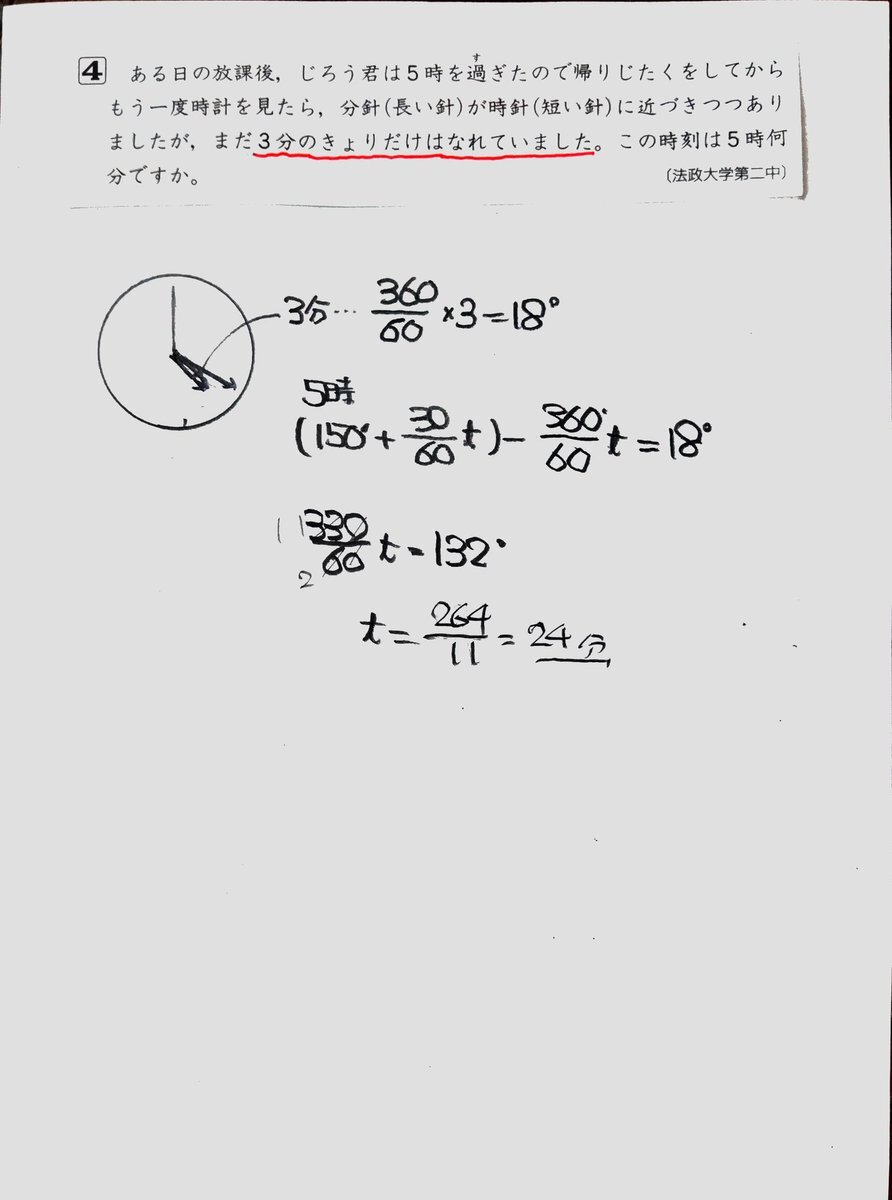 4 ある日の放課後，じろう君は5時を過ぎたので帰りじたくをしてから
もう一度時計を見たら，分針(長い針)が時針(短い針)に近づきつつあり
ましたが，まだ3分のきょりだけはなれていました。この時刻は5時何
分ですか。 (法政大学第二中)
3分… 360/60 ×3=18°
5時
(150°+30/60 t)-360°/60 t=18°
330/60 t=132°
11
2
t=264/11=24分